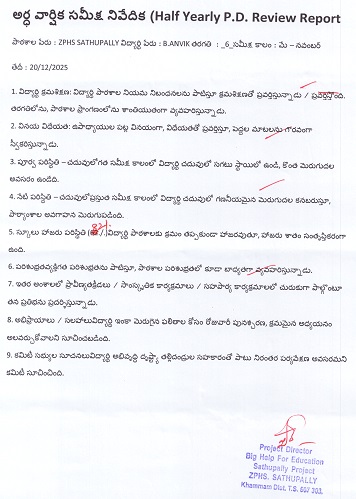 అర్ధ వార్షిక సమీక్ష నివేదిక (Half Yearly P.D. Review Report
పాఠశాల పేరు : ZPHS SATHUPALLY విద్యార్థి పేరు : B.ANVIK తరగతి : _6_సమీక్ష కాలం : మే – నవంబర్
తేదీ : 20/12/2025
1. విద్యార్థి క్రమశిక్షణ: విద్యార్థి పాఠశాల నియమ నిబంధనలను పాటిస్తూ క్రమశిక్షణతో ప్రవర్తిస్తున్నాడు / ప్రవర్తిస్తోంది.
తరగతిలోను, పాఠశాల ప్రాంగణంలోను శాంతియుతంగా వ్యవహరిస్తున్నాడు.
2. వినయ విధేయత: ఉపాధ్యాయుల పట్ల వినయంగా, విధేయతతో ప్రవర్తిస్తూ, పెద్దల మాటలను గౌరవంగా
స్వీకరిస్తున్నాడు.
3. పూర్వ పరిస్థితి – చదువులోగత సమీక్ష కాలంలో విద్యార్థి చదువులో సగటు స్థాయిలో ఉండి, కొంత మెరుగుదల
అవసరం ఉండేది.
4. నేటి పరిస్థితి – చదువులోప్రస్తుత సమీక్ష కాలంలో విద్యార్థి చదువులో గణనీయమైన మెరుగుదల కనబరుస్తూ,
పాఠ్యాంశాల అవగాహన మెరుగుపడింది.
5. స్కూలు హాజరు పరిస్థితి (82%).విద్యార్థి పాఠశాలకు క్రమం తప్పకుండా హాజరవుతూ, హాజరు శాతం సంతృప్తికరంగా
ఉంది.
6. పరిశుభ్రతవ్యక్తిగత పరిశుభ్రతను పాటిస్తూ, పాఠశాల పరిశుభ్రతలో కూడా బాధ్యతగా వ్యవహరిస్తున్నాడు.
7. ఇతర అంశాలలో ప్రావీణ్యతక్రీడలు / సాంస్కృతిక కార్యక్రమాలు / సహపాఠ్య కార్యక్రమాలలో చురుకుగా పాల్గొంటూ
తన ప్రతిభను ప్రదర్శిస్తున్నాడు.
8. అభిప్రాయాలు / సలహాలువిద్యార్థి ఇంకా మెరుగైన ఫలితాల కోసం రోజువారీ పునశ్చరణ, క్రమమైన అధ్యయనం
అలవర్చుకోవాలని సూచించబడింది.
9. కమిటీ సభ్యుల సూచనలువిద్యార్థి అభివృద్ధి దృష్ట్యా తల్లిదండ్రుల సహకారంతో పాటు నిరంతర పర్యవేక్షణ అవసరమని
కమిటీ సూచించింది.
Project Director
Big Help For Education
Sathupally Project
ZPHS. SATHUPALLY
Khammam Dist, T.S. 507 303.